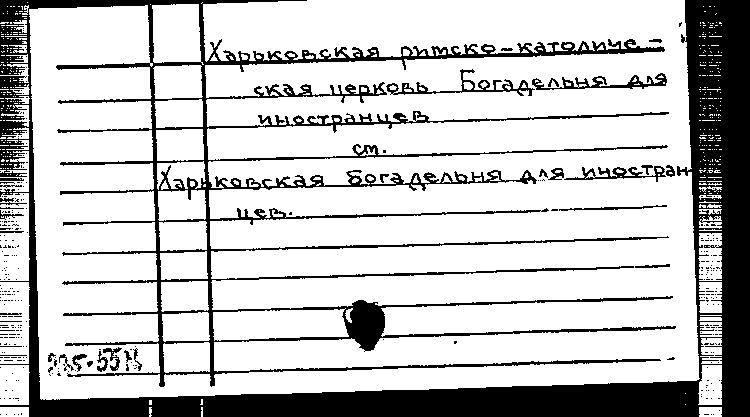 Харьковская римско-католиче-
ская церковь Богадельня для
иностранцев
см.
Харьковская богадельня для иностран-
цев.